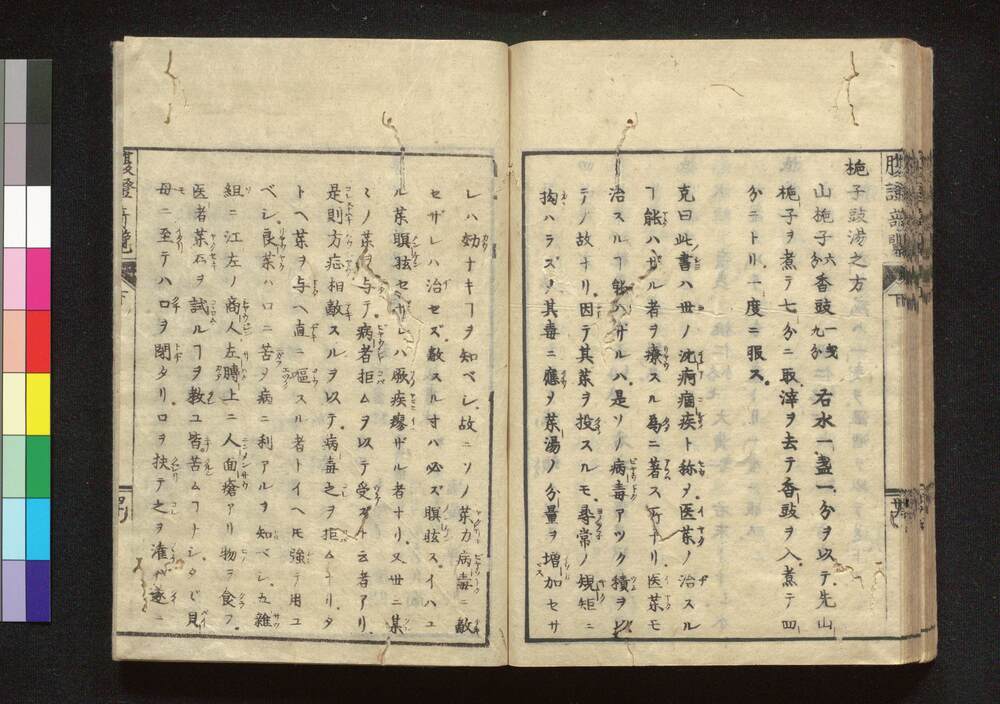 梔子豉湯之方
山梔子六分香豉一戔九分 右水一盞一分ヲ以テ先山
梔子ヲ煮テ七分ニ取滓ヲ去テ香豉ヲ入煮テ四
分ニトリ一度ニ服ス
克曰此書ハ世ノ沈痾痼疾ト称ヲ医薬ノ治スル
ヿ能ハザル者ヲ療スル為ニ著ス所ナリ医薬モ
治スルヿ能ハザルハ是ソノ病毒アツク積ヲ
テノ故ナリ因テ其薬ヲ投スルモ尋常ノ規矩ニ
拘ハラズノ其毒ニ應ヲ薬湯ノ分量ヲ増加セサ
レハ効ナキヿヲ知ベシ故ニソノ薬力病毒ニ敵
セザレハ治セズ敵スル寸ハ必ズ瞑眩スイハユ
ル薬瞑眩セザレハ厥疾瘳ザル者ナリ又世ニ某
ミノ薬ヲ与テ病者拒ムヲ以テ受ズト云者アリ
是則方症相敵スルヲ以テ病毒之ヲ拒ムナリタ
トヘ薬ヲ与ヘ直ニ嘔スル者トイヘ𪜈強テ用ユ
ベシ良薬ハ口ニ苦ヲ病ニ利アルヲ知ベシ五雑
組ニ江左ノ商人左膊上ニ人面瘡アリ物ヲ食フ
医者薬石ヲ試ルヿヲ教ユ皆苦ムヿナシタヾ貝
母ニ至テハ口ヲ閉タリ口ヲ抉テ之ヲ灌ガ遂ニ